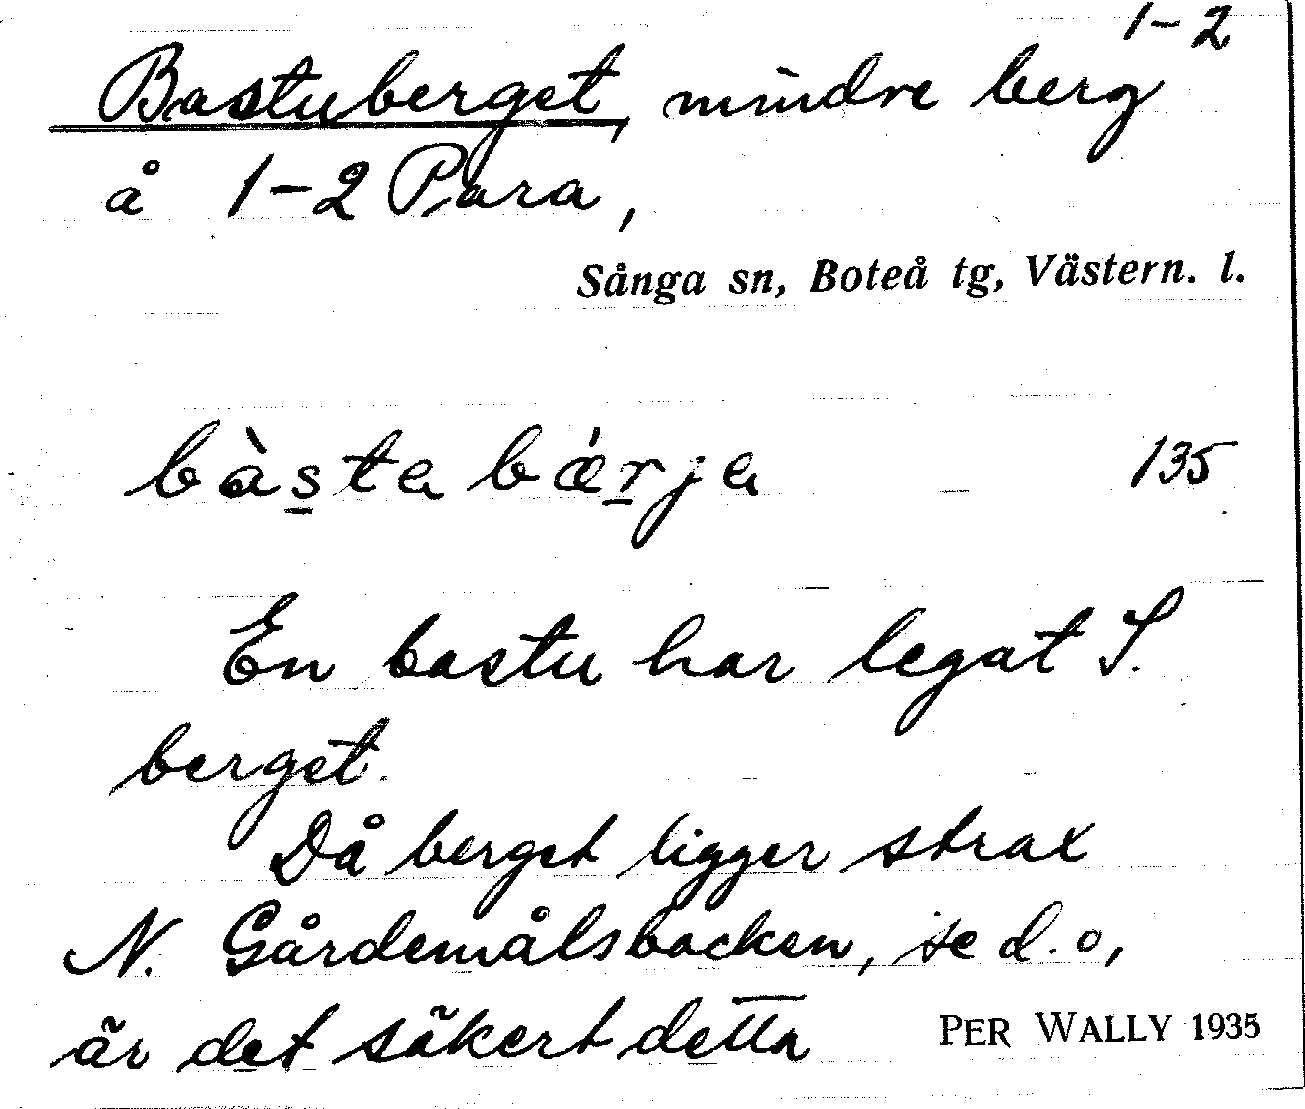 1-2
Bastuberget, mindre berg
å 1-2 Para,
Sånga sn, Boteå tg, Västern. l.
bàsta bǽrja 135
En bastu har legat S.
berget.
Då berget ligger strax
N. Gårdemålsbacken, se d.o,
är det säkert detta
PER WALLY 1935